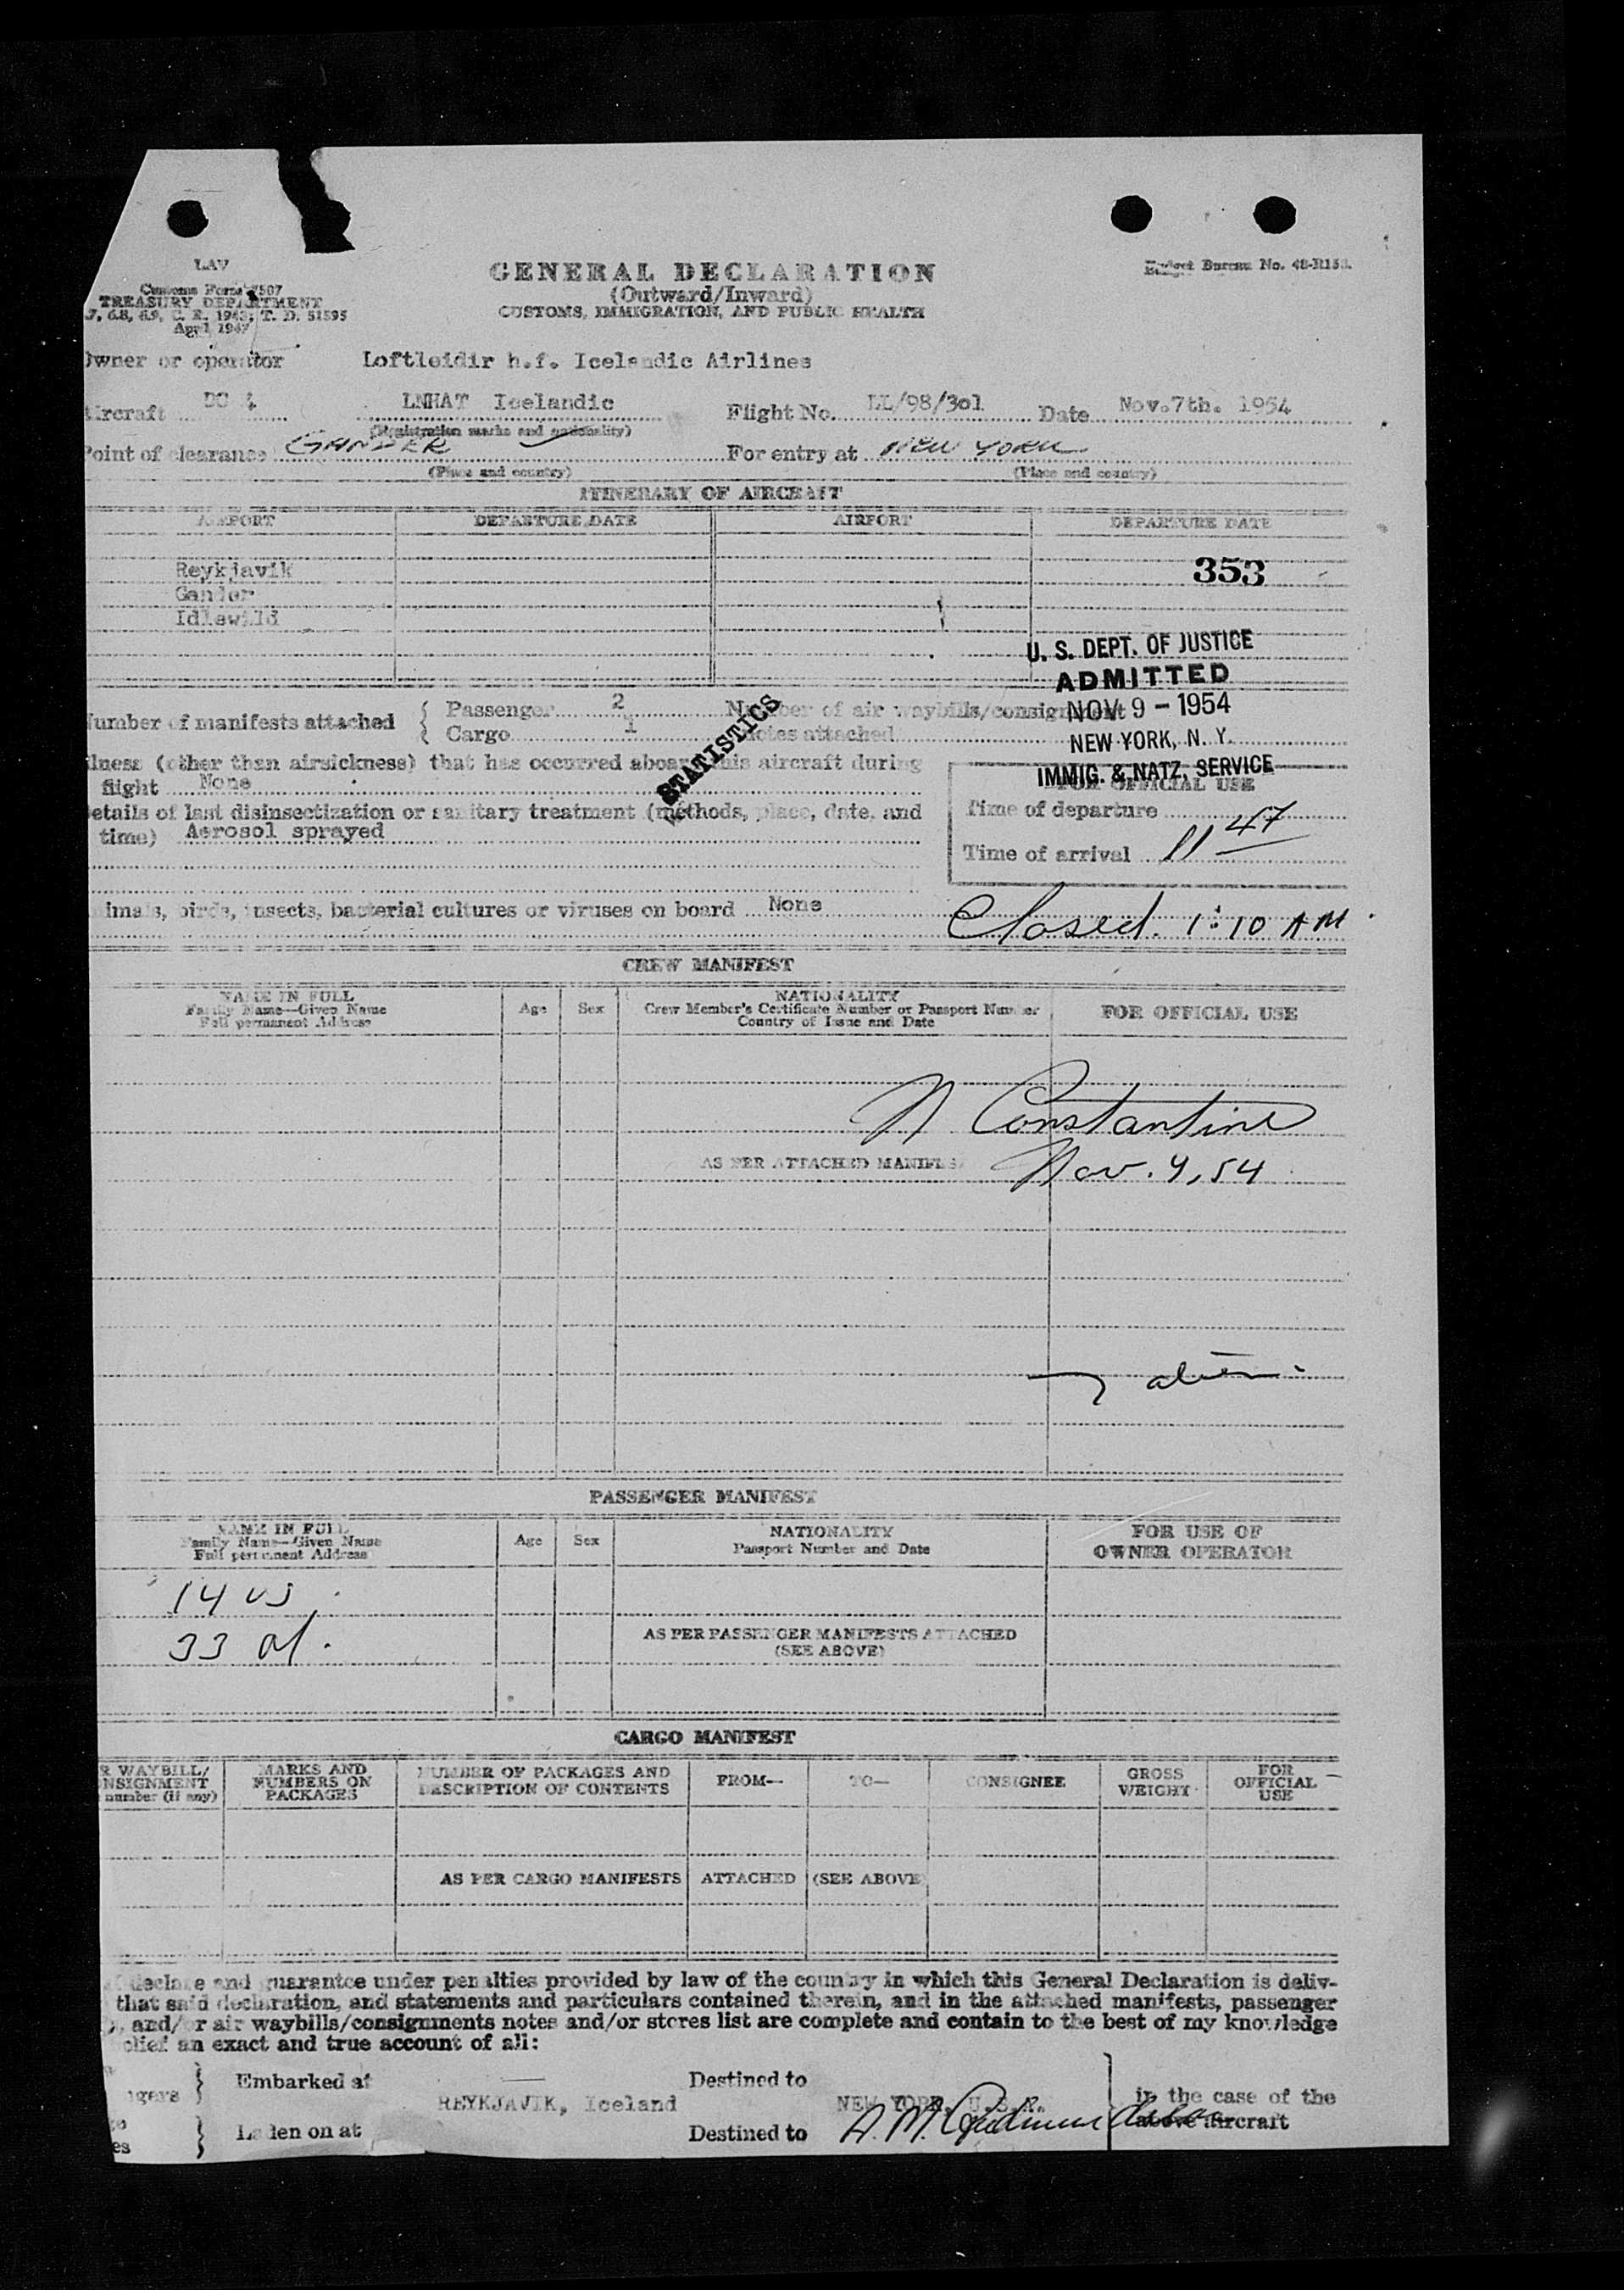 LAV
Customs Form 7507
TREASURY DEPARTMENT
7, 6.8, 6.9, C. R. 1943; T. D. 51595
April 1947
GENERAL DECLARATION
(Outward/Inward)
CUSTOMS, IMMIGRATION, AND PUBLIC HEALTH
Budget Bureau No. 48-R153.
Owner or operator Loftleidir h.f. Icelandic Airlines
Aircraft DC 4 LNHAT Icelandic Flight No. LL/98/3o1 Date Nov.7th. 1954
(Registration marks and nationality)
Point of clearance GANDER For entry at NEW YORK
(Place and country) (Place and country)
ITINERARY OF AIRCRAFT
AIRPORT DEPARTURE DATE AIRPORT DEPARTURE DATE
Reykjavik 353
Gander
Idlewild
U. S. DEPT. OF JUSTICE
ADMITTED
NOV 9 - 1954
NEW YORK, N. Y.
IMMIG. & NATZ. SERVICE
Number of manifests attached { Passenger 2 Number of air waybills/consignment
{ Cargo 1 notes attached
STATISTICS
illness (other than airsickness) that has occurred aboard this aircraft during
flight None
FOR OFFICIAL USE
Details of last disinsectization or sanitary treatment (methods, place, date, and
time) Aerosol sprayed
Time of departure
Time of arrival 11 47
Animals, birds, insects, bacterial cultures or viruses on board None
Closed. 1:10 AM
CREW MANIFEST
NAME IN FULL
Family Name—Given Name
Full permanent Address
Age Sex
NATIONALITY
Crew Member's Certificate Number or Passport Number
Country of Issue and Date
FOR OFFICIAL USE
N Constantine
AS PER ATTACHED MANIFEST Nov. 9, 54
7
PASSENGER MANIFEST
NAME IN FULL
Family Name—Given Name
Full permanent Address
Age Sex
NATIONALITY
Passport Number and Date
FOR USE OF
OWNER OPERATOR
14 US
33 al.
AS PER PASSENGER MANIFESTS ATTACHED
(SEE ABOVE)
CARGO MANIFEST
R WAYBILL/
NSIGNMENT
number (if any)
MARKS AND
NUMBERS ON
PACKAGES
NUMBER OF PACKAGES AND
DESCRIPTION OF CONTENTS
FROM— TO— CONSIGNEE
GROSS
WEIGHT
FOR
OFFICIAL
USE
AS PER CARGO MANIFESTS ATTACHED (SEE ABOVE)
declare and guarantee under penalties provided by law of the country in which this General Declaration is deliv-
that said declaration, and statements and particulars contained therein, and in the attached manifests, passenger
), and/or air waybills/consignments notes and/or stores list are complete and contain to the best of my knowledge
belief an exact and true account of all:
ngers } Embarked at Destined to in the case of the
REYKJAVIK, Iceland NEW YORK, U.S.A.
es } Laden on at Destined to above aircraft